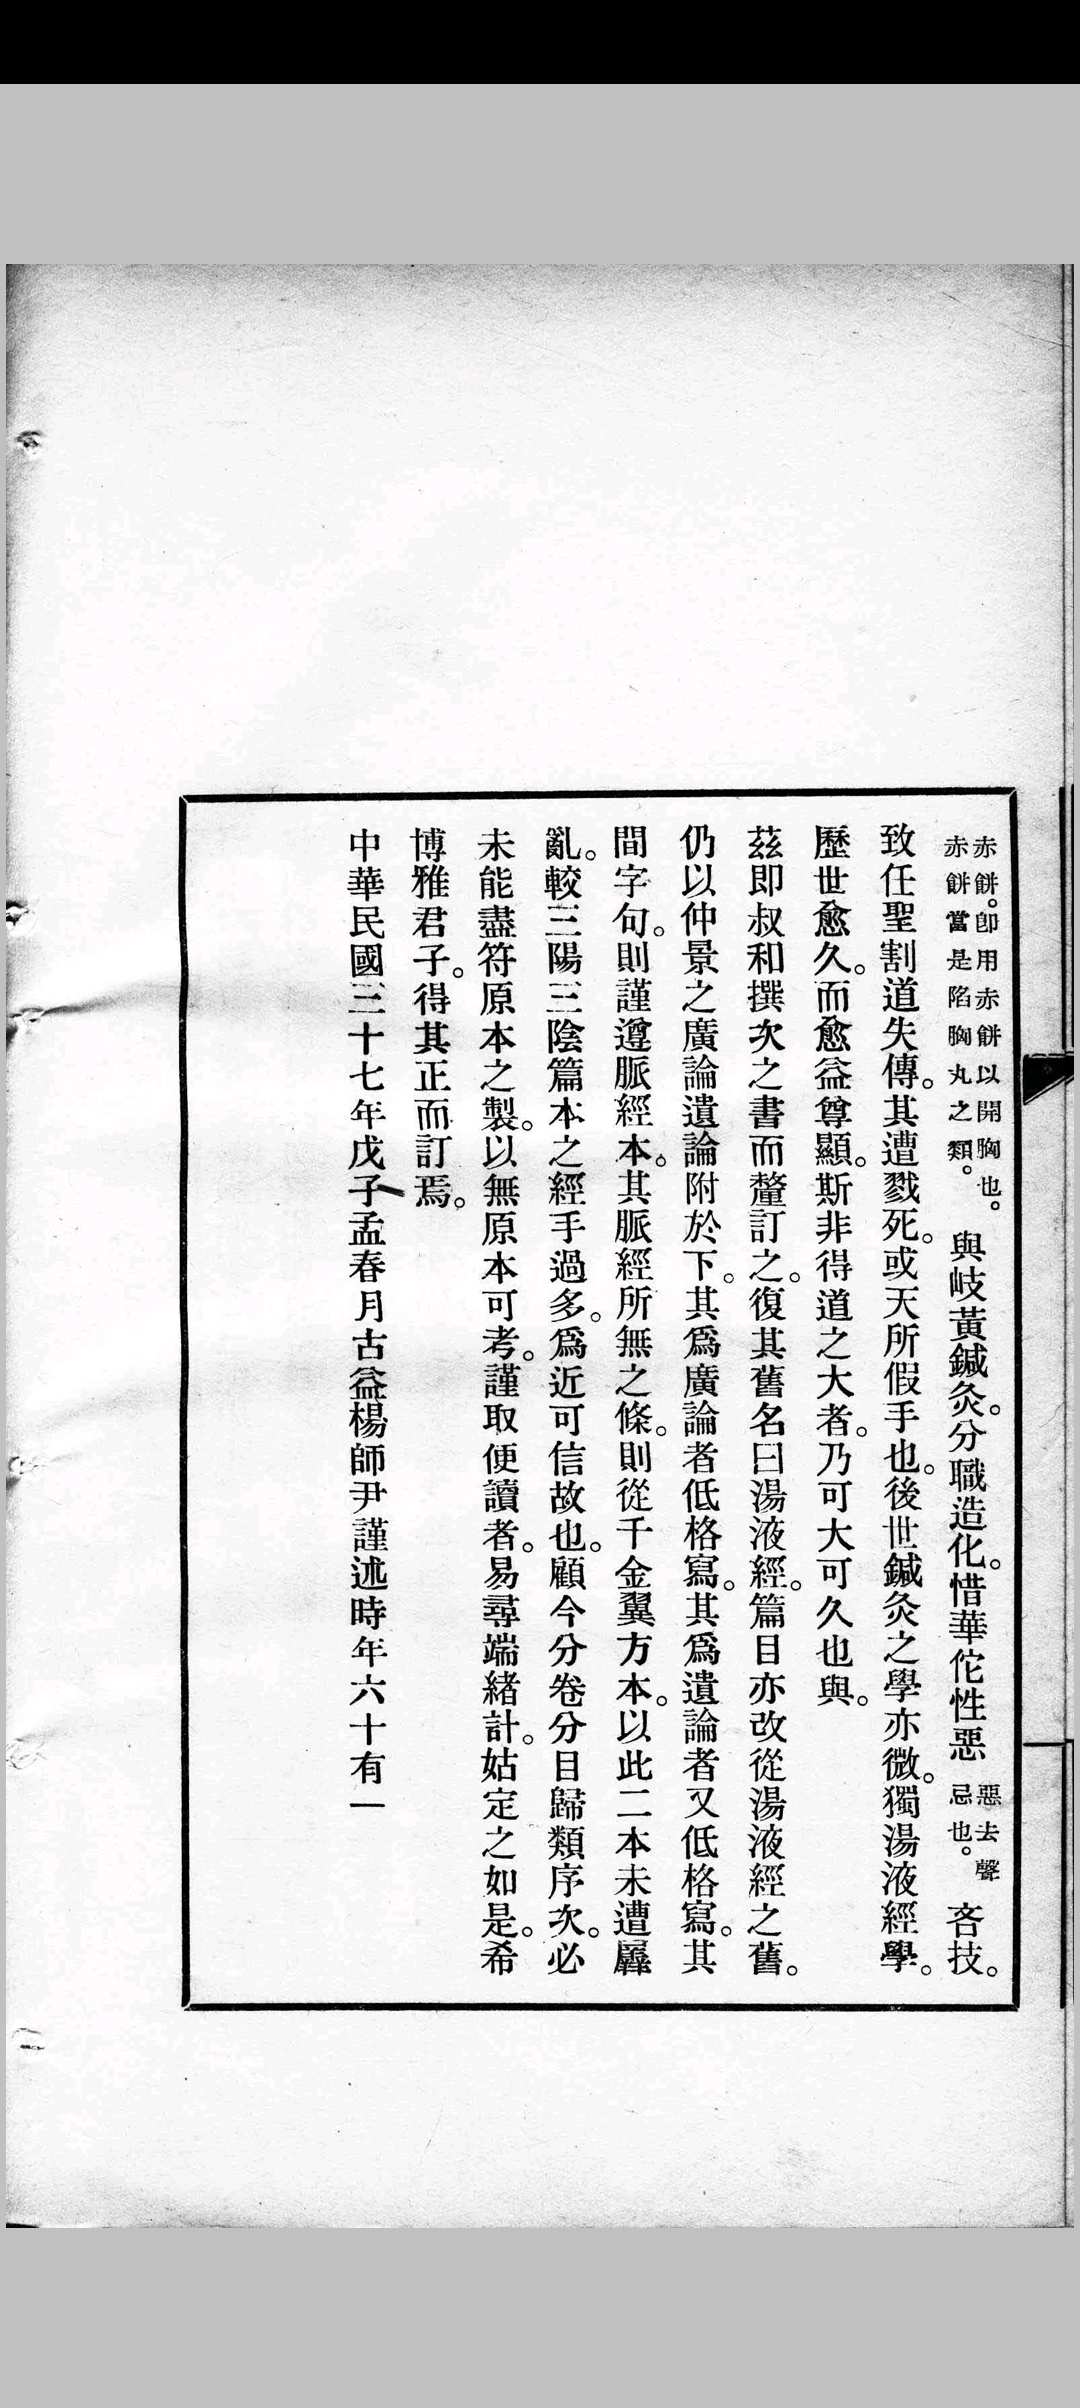 赤餅。卽用赤餅以開胸也。
赤餅當是陷胸丸之類。
與岐黃鍼灸。分職造化。惜華佗性惡
惡去聲
忌也。
吝技。
致任聖割道失傳。其遭戮死。或天所假手也。後世鍼灸之學亦微。獨湯液經學。
歷世愈久。而愈益尊顯。斯非得道之大者。乃可大可久也與。
茲即叔和撰次之書而釐訂之。復其舊名曰湯液經。篇目亦改從湯液經之舊。
仍以仲景之廣論遺論附於下。其爲廣論者低格寫。其爲遺論者又低格寫。其
間字句。則謹遵脈經本。其脈經所無之條。則從千金翼方本。以此二本未遭羼
亂。較三陽三陰篇本之經手過多。爲近可信故也。顧今分卷分目歸類序次。必
未能盡符原本之製。以無原本可考。謹取便讀者。易尋端緒計。姑定之如是。希
博雅君子。得其正而訂焉。
中華民國三十七年戊子孟春月古益楊師尹謹述時年六十有一